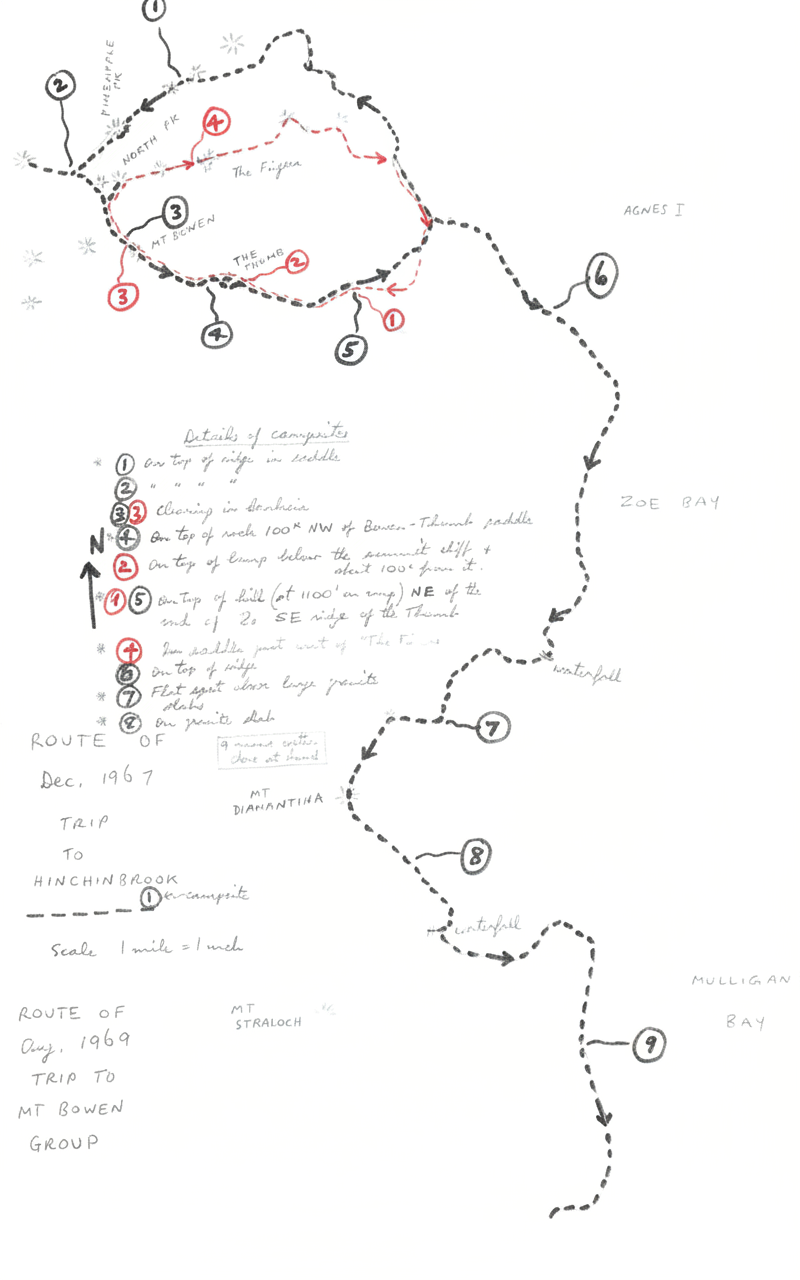 1
2
PINEAPPLE
PK
NORTH PK
4
The Fingers
3
MT BOWEN
THE
THUMB
2
3
4
5
1
AGNES I
6
Details of campsites
* 1 On top of ridge in saddle
2 " " " "
3 3 Clearing in
* 4 On top of rock 100x NW of Bowen-Thumb saddle
N
2 On top of hump below the summit cliff +
about 100x from it.
* 1 5 On top of hill (at 1100' on map) NE of the
end of SE ridge of the Thumb
* 4 In saddle just west of "The
6 On top of ridge
* 7 Flat spot above large granite
slabs
* 8 On granite slab
ZOE BAY
waterfall
7
ROUTE OF
Dec, 1967
TRIP
TO
HINCHINBROOK
1 ← campsite
Scale 1 mile = 1 inch
9
MT
DIAMANTINA
8
waterfall
MULLIGAN
BAY
9
MT
STRALOCH
ROUTE OF
Aug, 1969
TRIP TO
MT BOWEN
GROUP